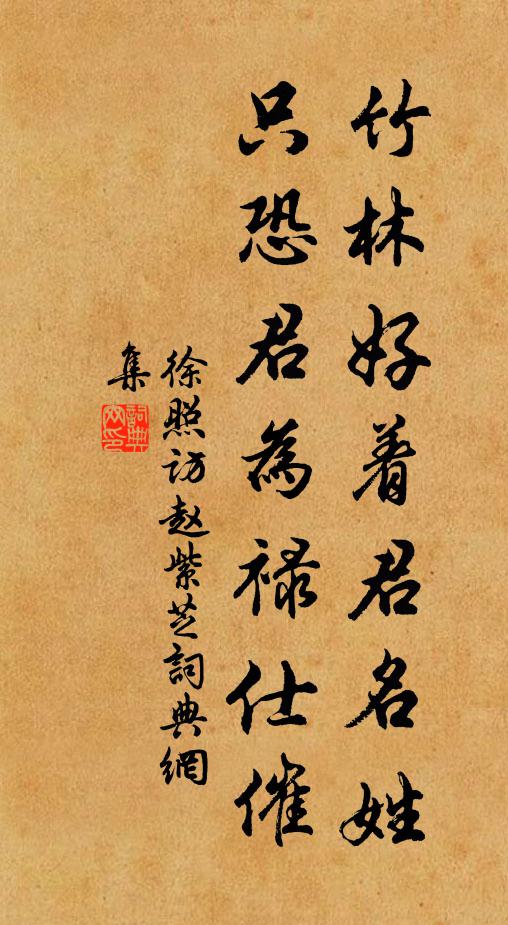 竹林好着君名姓
只恐君為禄仕催
徐照访赵紫芝詞典網
集
詞典网印